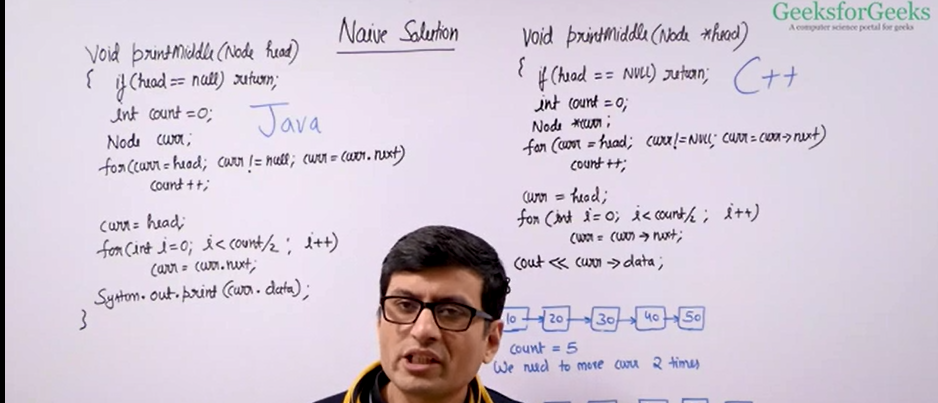 GeeksforGeeks
A computer science portal for geeks
Naive Solution
void printMiddle(Node head)
{ if(head == null) return;
int count = 0;
Node curr;
for(curr = head; curr != null; curr = curr.next)
count ++;
curr = head;
for(int i=0; i < count/2 ; i++)
curr = curr.next;
System.out.print(curr.data);
}
Java
void printMiddle(Node *head)
{ if(head == NULL) return;
int count = 0;
Node *curr;
for(curr = head; curr != NULL; curr = curr→next)
count ++;
curr = head;
for(int i=0; i < count/2 ; i++)
curr = curr → next;
cout << curr → data ;
C++
10 → 20 → 30 → 40 → 50
count = 5
We need to move curr 2 times